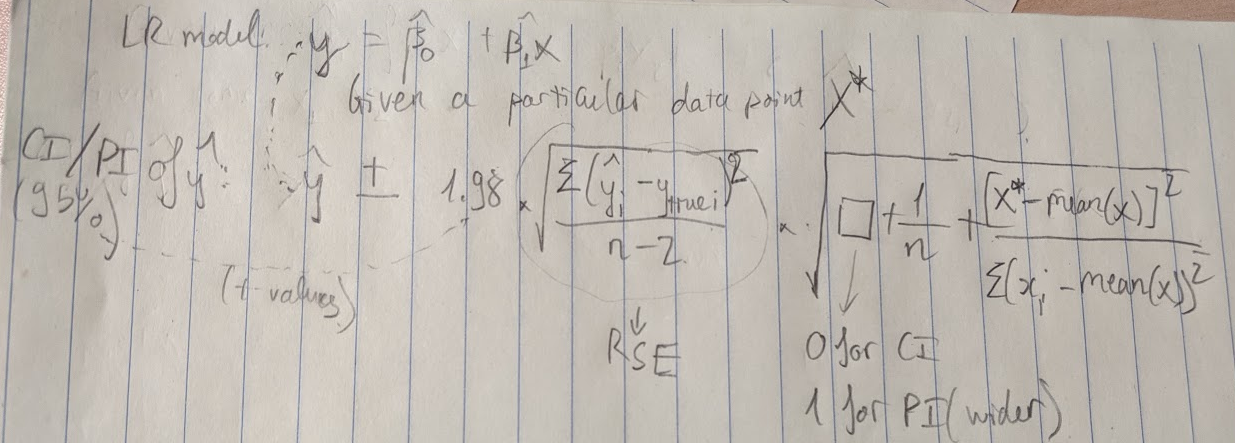 LR model: ŷ = β̂₀ + β̂₁x
Given a particular data point X*
CI/PI of ŷ: ŷ ± 1.98 × √(Σ(ŷᵢ - y_true i)² / (n-2)) × √(□ + 1/n + [X* - mean(x)]² / Σ(xᵢ - mean(x))²)
(95%)
(t-values)
RSE
0 for CI
1 for PI (wider)